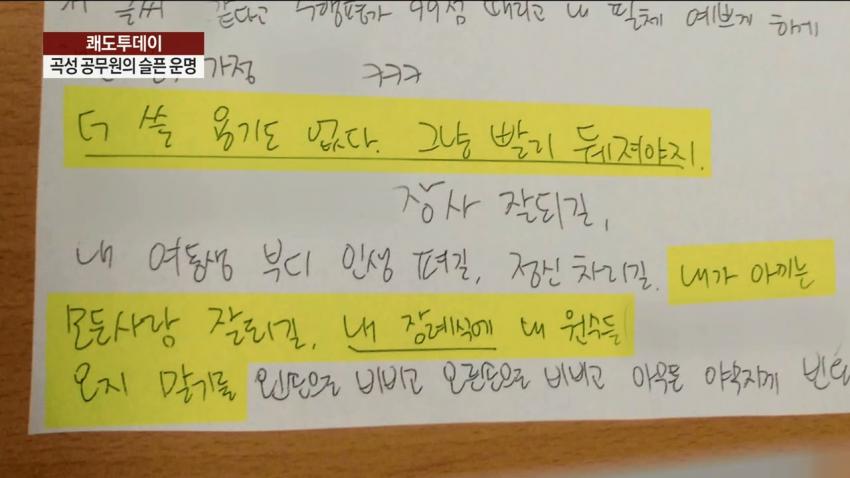 쾌도투데이
곡성 공무원의 슬픈 운명
같다고 수행평가 99점 때리고 내 필체 예쁘게 하게
가정 ㅋㅋㅋ
더 쓸 용기도 없다. 그냥 빨리 뒈져야지.
장사 잘되길,
내 여동생 부디 인생 펴길, 정신 차리길. 내가 아끼는
모든사람 잘되길, 내 장례식에 내 원수들
오지 말기를 왼손으로 비비고 오른손으로 비비고